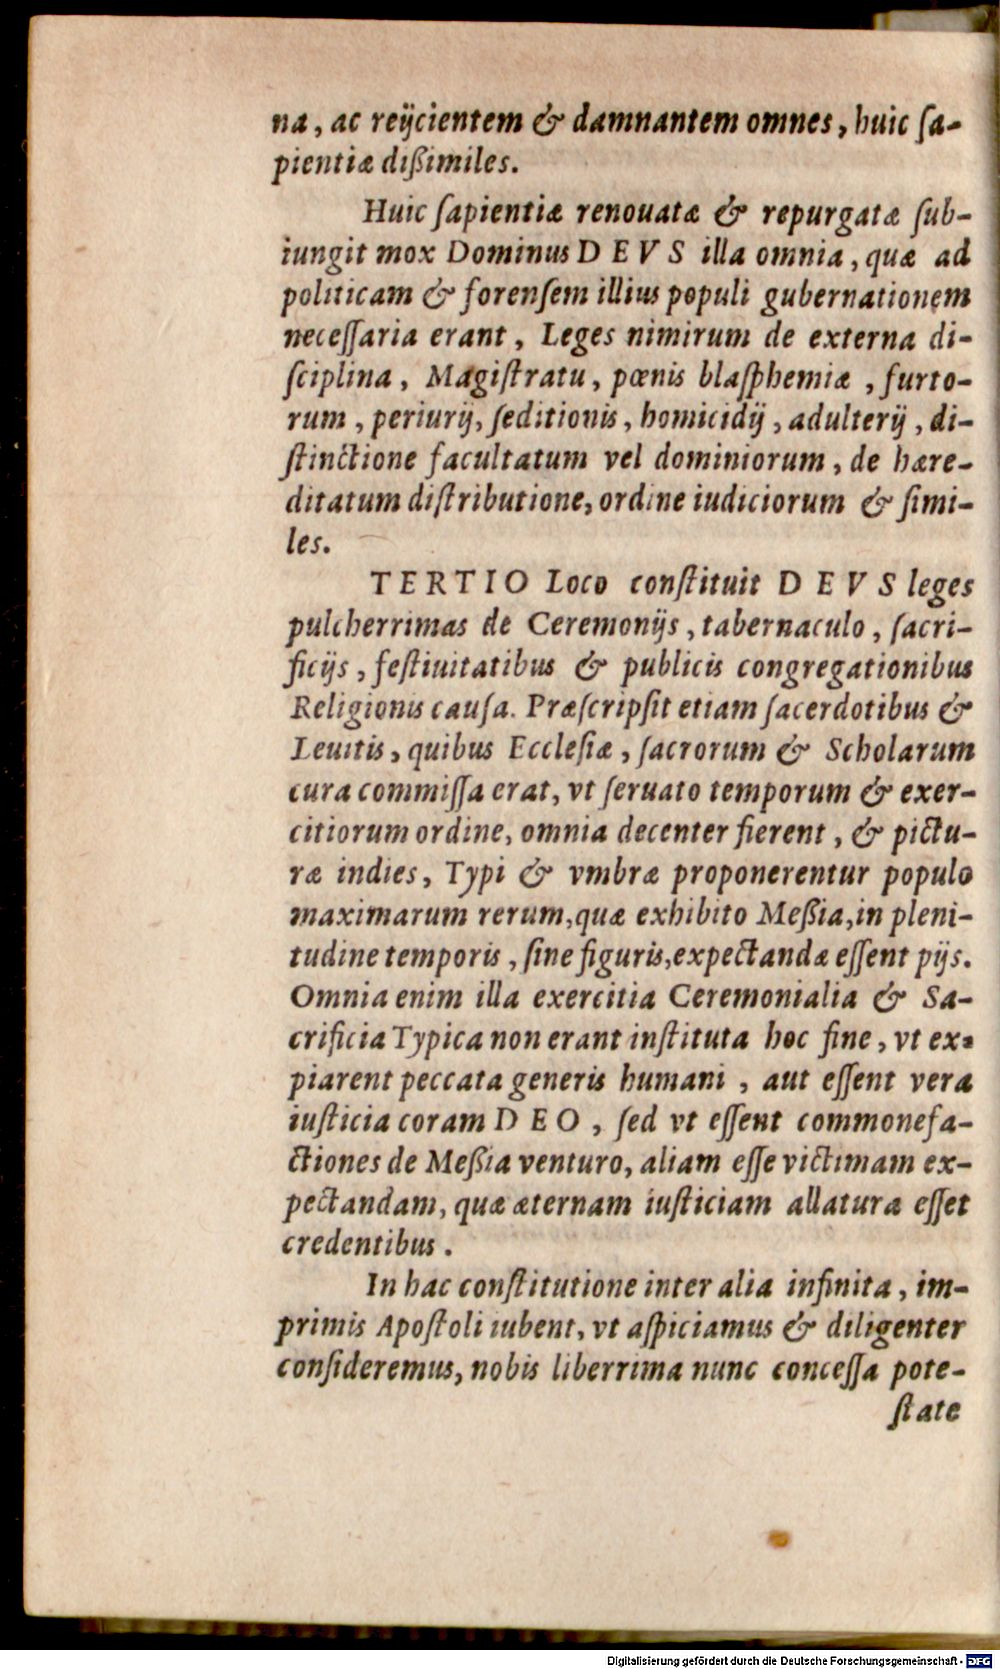 na, ac reijcientem & damnantem omnes, huic ſa-
pientiæ dißimiles.
Huic ſapientiæ renouatæ & repurgatæ ſub-
iungit mox Dominus DEVS illa omnia, quæ ad
politicam & forenſem illius populi gubernationem
neceſſaria erant, Leges nimirum de externa di-
ſciplina, Magiſtratu, pœnis blaſphemiæ, furto-
rum, periurij, ſeditionis, homicidij, adulterij, di-
ſtinctione facultatum vel dominiorum, de hære-
ditatum diſtributione, ordine iudiciorum & ſimi-
les.
TERTIO Loco conſtituit DEVS leges
pulcherrimas de Ceremonijs, tabernaculo, ſacri-
ficijs, feſtiuitatibus & publicis congregationibus
Religionis cauſa. Præſcripſit etiam ſacerdotibus &
Leuitis, quibus Eccleſiæ, ſacrorum & Scholarum
cura commiſſa erat, vt ſeruato temporum & exer-
citiorum ordine, omnia decenter fierent, & pictu-
ræ indies, Typi & vmbræ proponerentur populo
maximarum rerum, quæ exhibito Meßia, in pleni-
tudine temporis, ſine figuris, expectandæ eſſent pijs.
Omnia enim illa exercitia Ceremonialia & Sa-
crificia Typica non erant inſtituta hoc fine, vt ex-
piarent peccata generis humani, aut eſſent vera
iuſticia coram DEO, ſed vt eſſent commonefa-
ctiones de Meßia venturo, aliam eſſe victimam ex-
pectandam, quæ æternam iuſticiam allatura eſſet
credentibus.
In hac conſtitutione inter alia infinita, im-
primis Apoſtoli iubent, vt aſpiciamus & diligenter
conſideremus, nobis liberrima nunc conceſſa pote-
ſtate
Digitalisierung gefördert durch die Deutsche Forschungsgemeinschaft - DFG